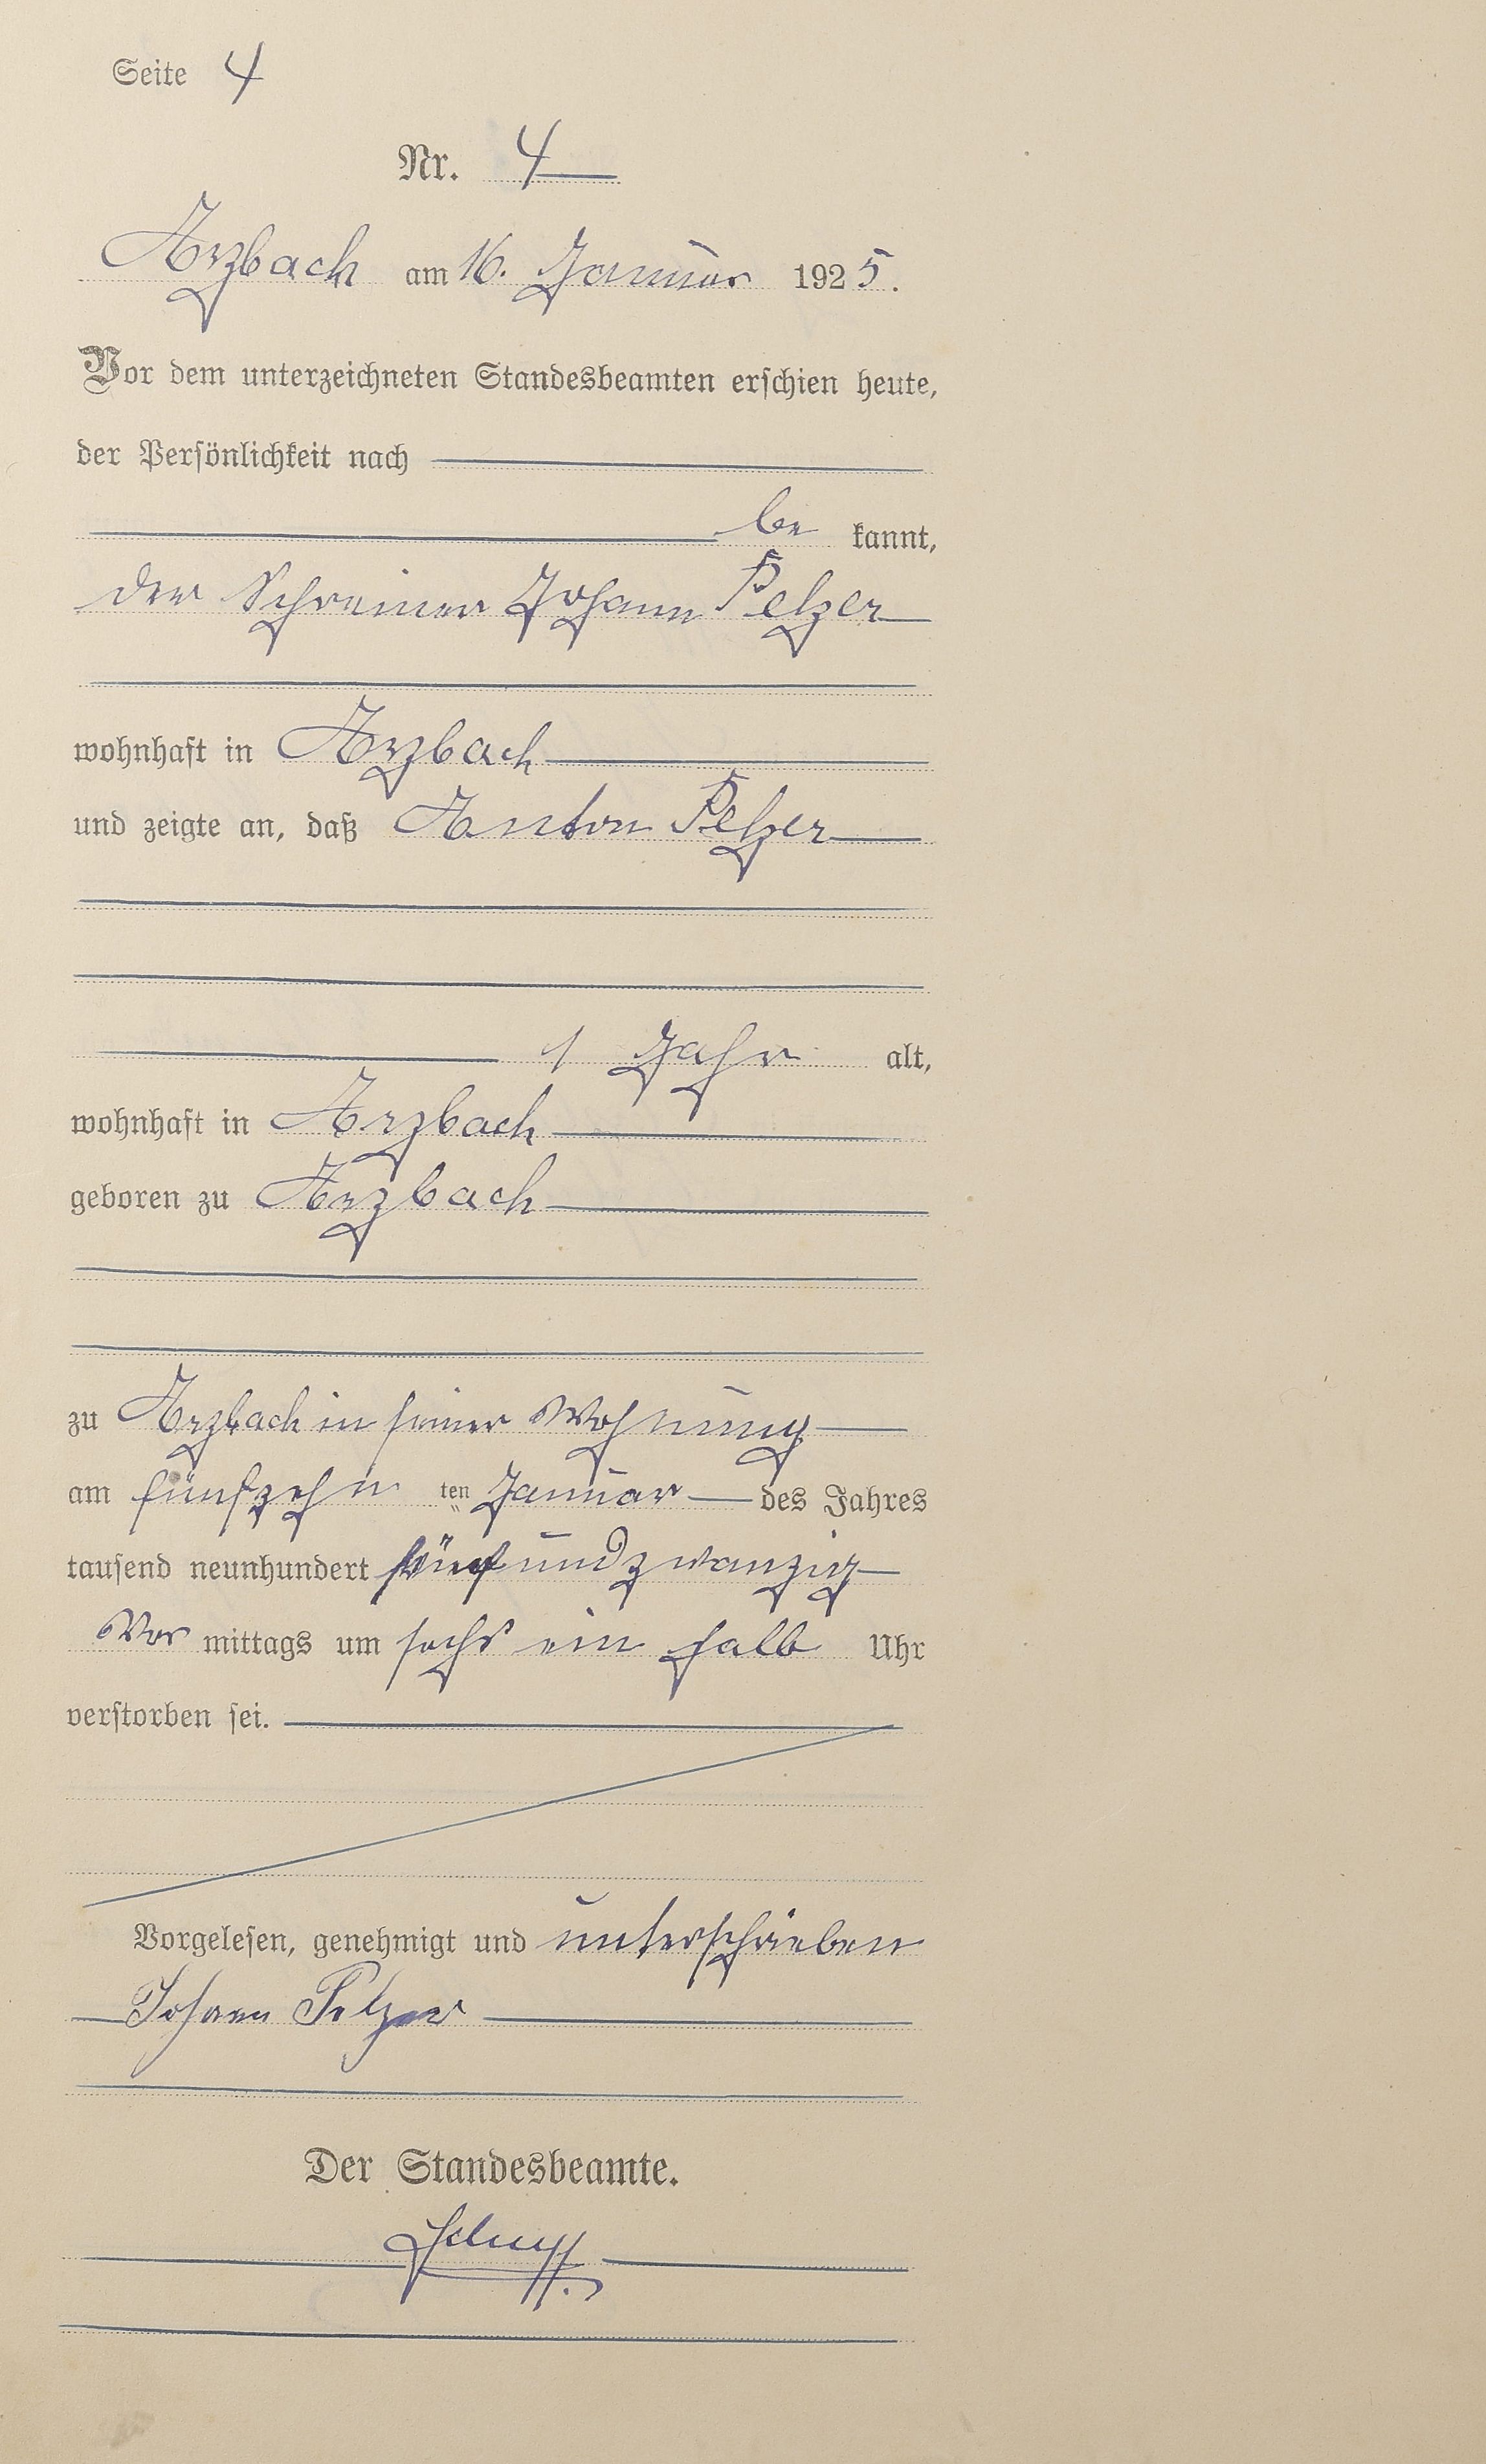 Seite 4
Nr. 4
Arzbach am 16. Januar 1925.
Vor dem unterzeichneten Standesbeamten erschien heute,
der Persönlichkeit nach
be kannt,
der Schreiner Johann Pelzer
wohnhaft in Arzbach
und zeigte an, daß Anton Pelzer
1 Jahr alt,
wohnhaft in Arzbach
geboren zu Arzbach
zu Arzbach in seiner Wohnung
am fünfzehn ten Januar des Jahres
tausend neunhundert fünfundzwanzig
Vor mittags um sechs ein halb Uhr
verstorben sei.
Vorgelesen, genehmigt und unterschrieben
Johann Pelzer
Der Standesbeamte.